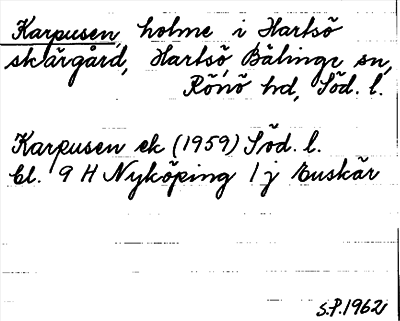 Karpusen, holme i Hartsö
skärgård, Hartsö Bälinge sn,
Rönö hd, Söd. l.
Karpusen ek (1959) Söd. l.
bl. 9 H Nyköping 1 j Enskär
S.P. 1962